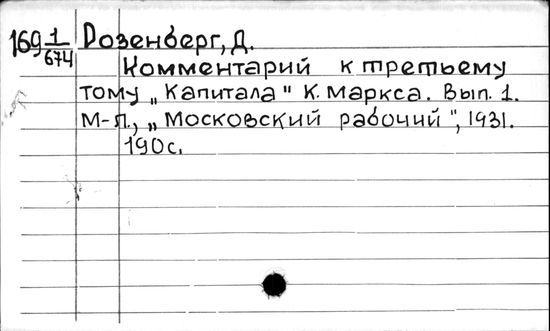 169 1/674 Розенберг, Д.
Комментарий к третьему
тому „Капитала" К. Маркса. Вып. 1.
М-Л., „Московский рабочий", 1931.
190с.